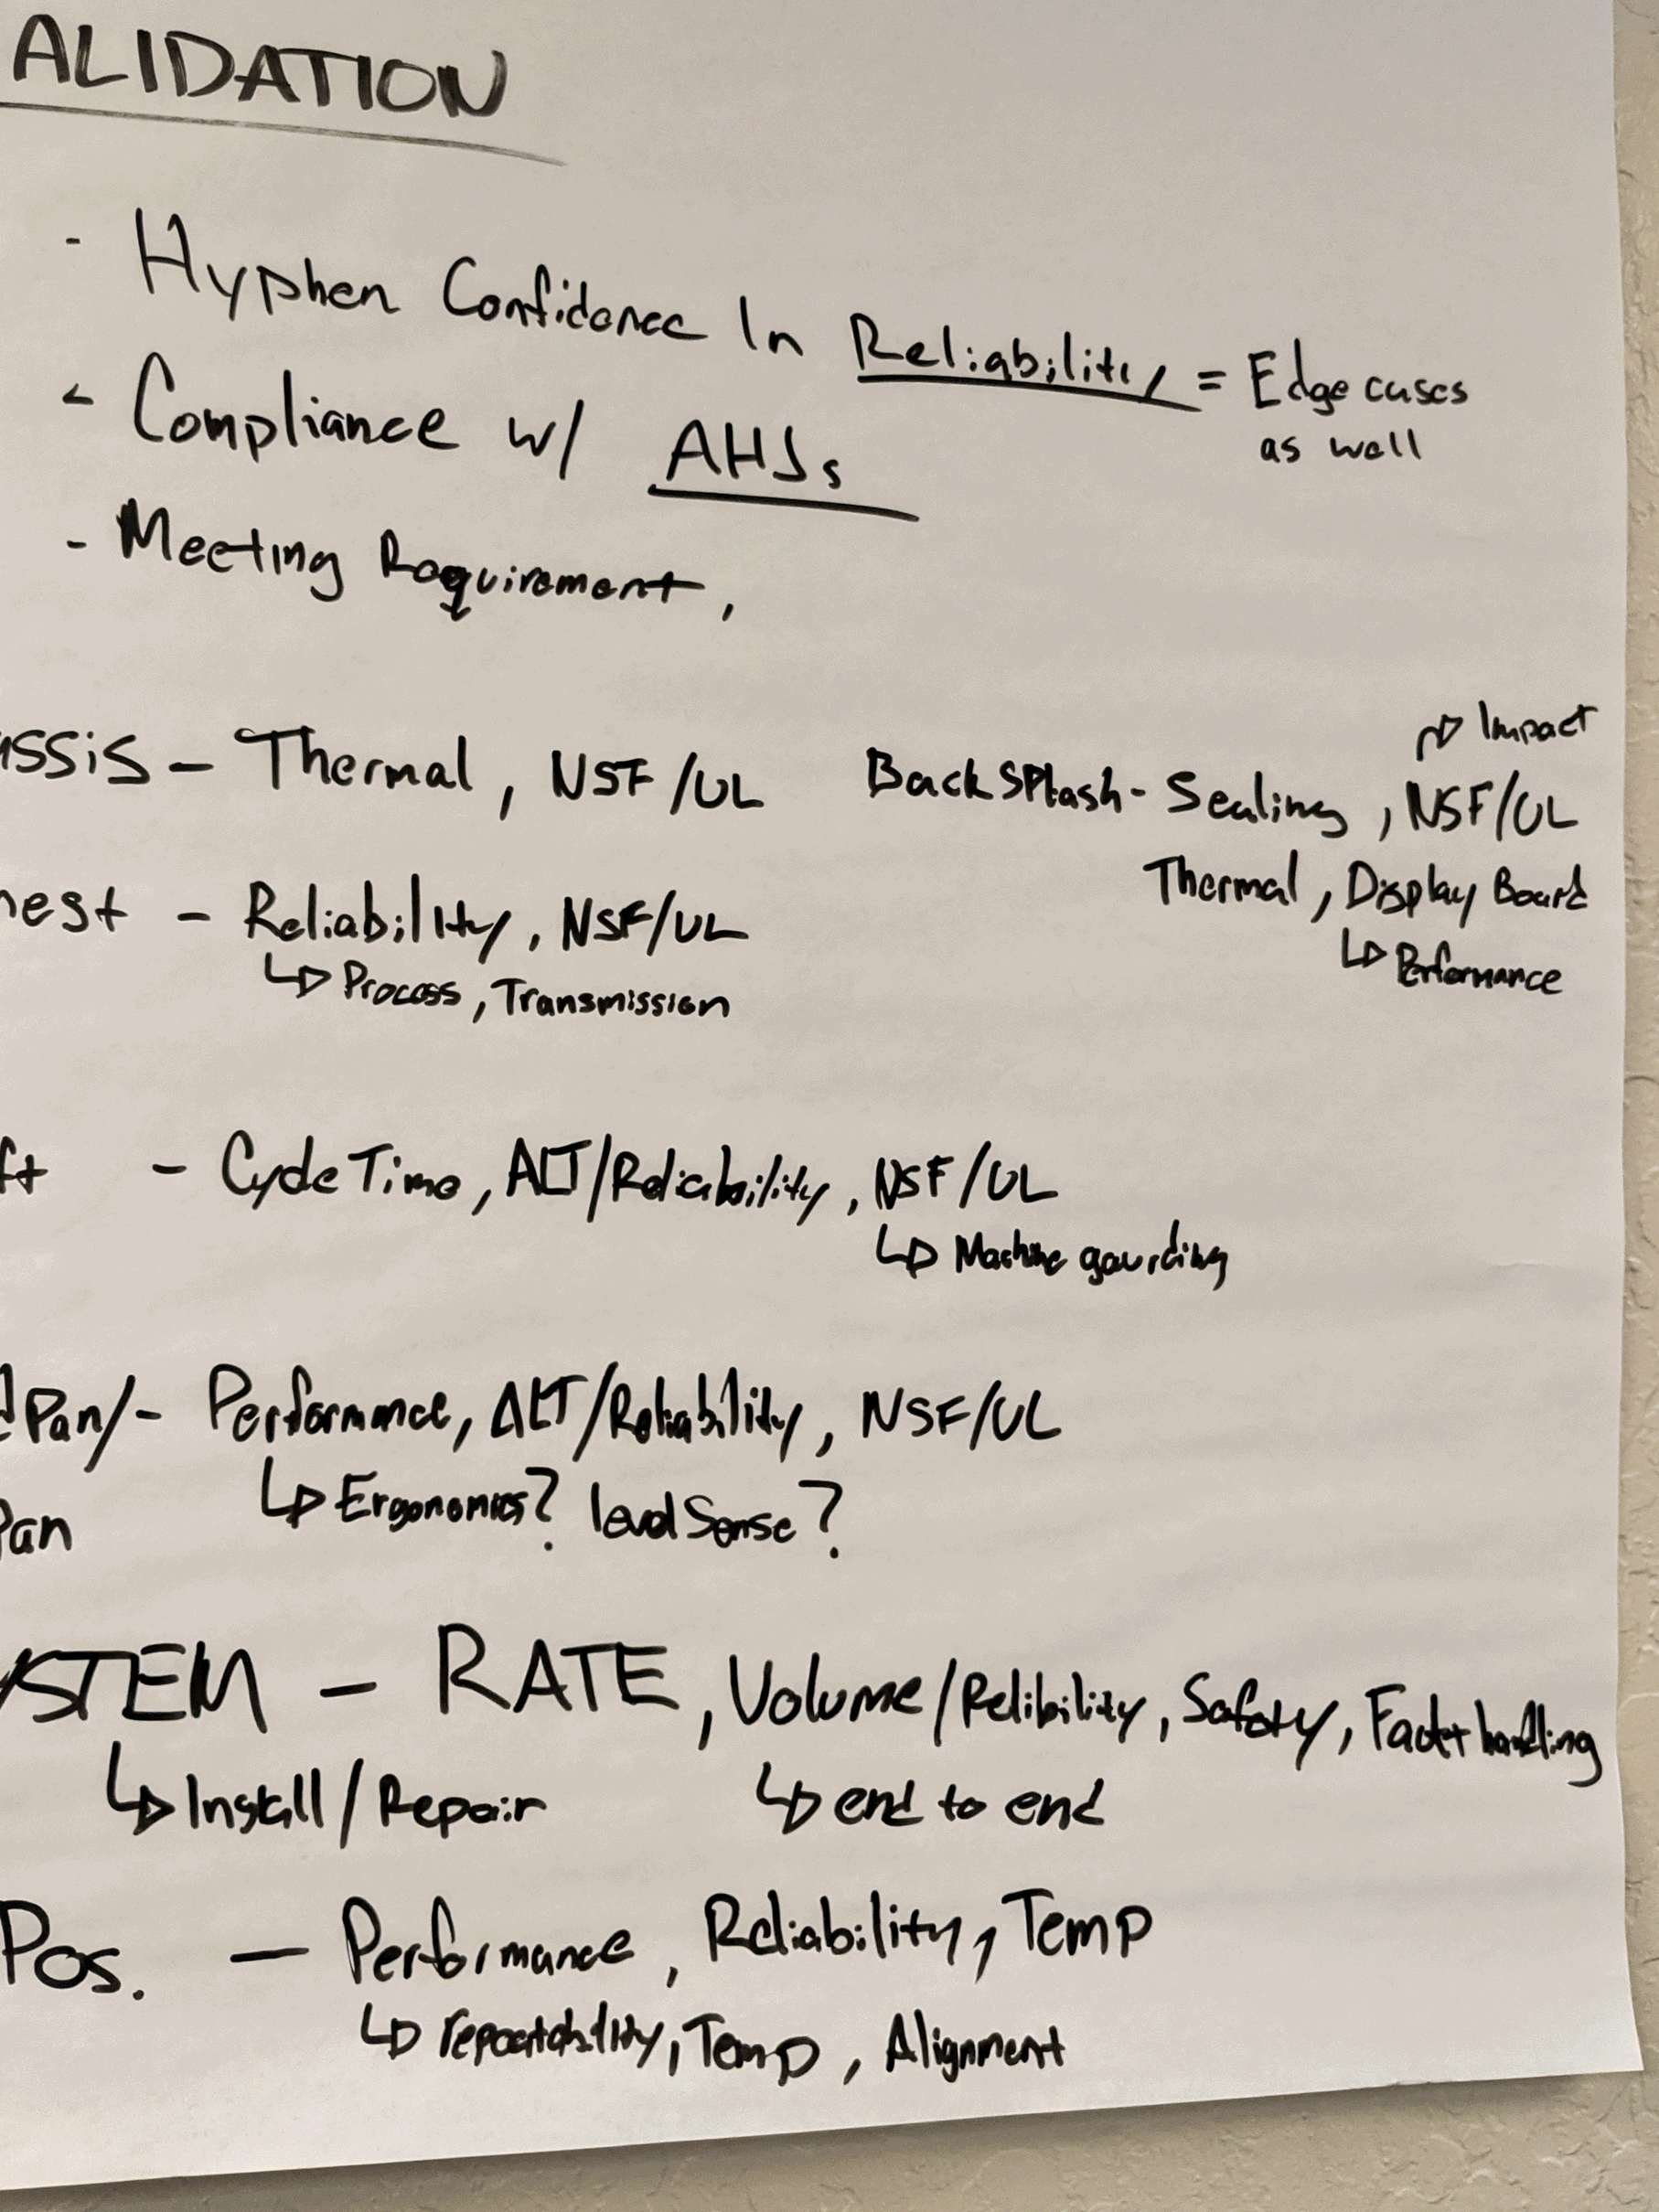 ALIDATION
- Hyphen Confidence In Reliability = Edge cases
as well
- Compliance w/ AHJs
- Meeting Requirement,
assis - Thermal, NSF/UL
Back Splash - Sealing, NSF/UL
↱ Impact
Thermal, Display Board
↳ Performance
hest - Reliability, NSF/UL
↳ Process, Transmission
ft - Cycle Time, ALT/Reliability, NSF/UL
↳ Machine gaurding
d Pan/- Performance, ALT/Reliability, NSF/UL
Pan
↳ Ergonomics? level Sense?
YSTEM - RATE, Volume/Relibility, Safety, Fault handling
↳ Install/Repair
↳ end to end
Pos. - Performance, Reliability, Temp
↳ repeatability, Temp, Alignment